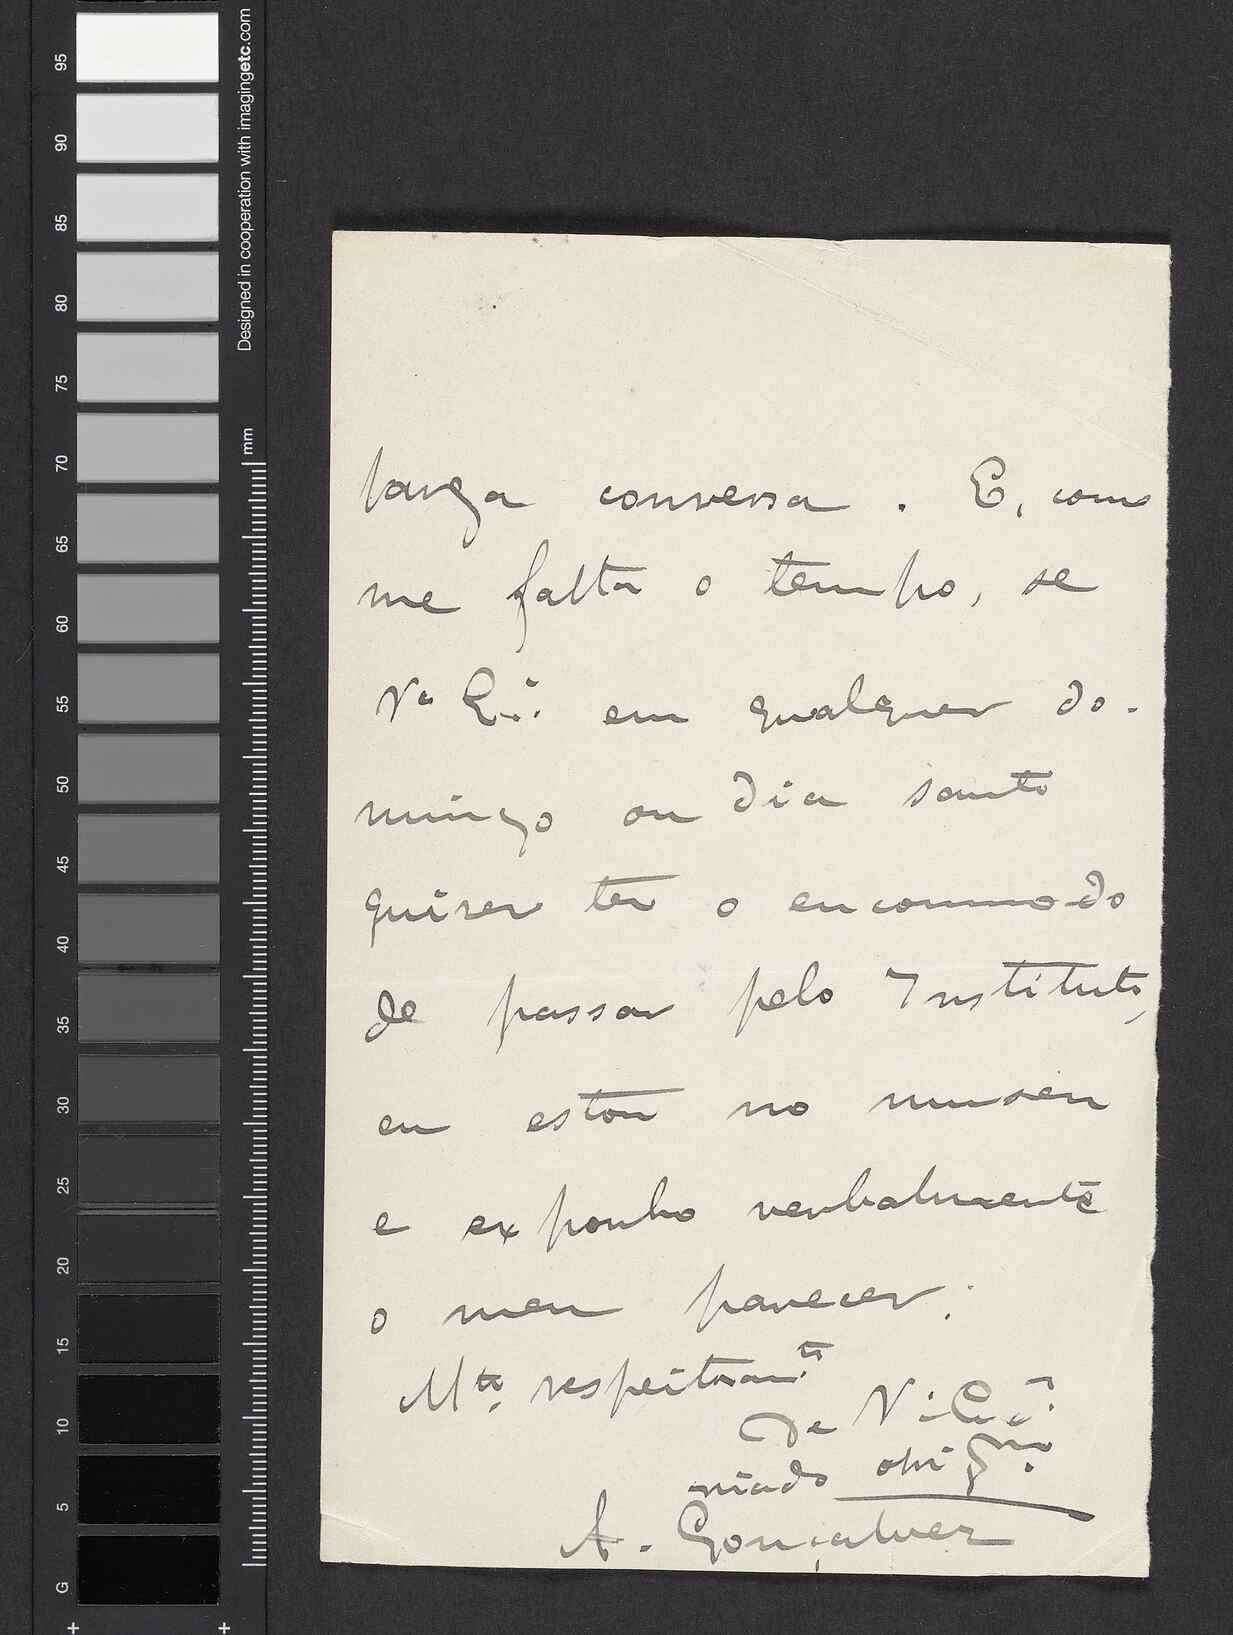 95
90
85
80
75
70
65
60
55
50
45
40
35
30
25
20
15
10
5
G
Designed in cooperation with imagingetc.com
mm
larga conversa. E, como
me falta o tempo, se
V.ª Ex.ª em qualquer do-
mingo ou dia santo
quiser ter o encommodo
de passar pelo Instituto,
eu estou no museu
e exponho verbalmente
o meu parecer.
M.to respeitosam.te
De V. Ex.ª
criado obrig.mo
A. Gonçalves